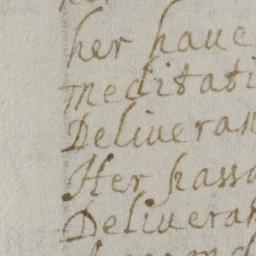 her haue
meditati
Deliueran
Her passa
Deliueran